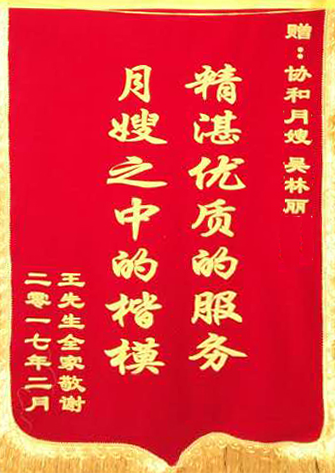 赠：协和月嫂 吴林丽
精湛优质的服务
月嫂之中的楷模
王先生全家敬谢
二零一七年二月